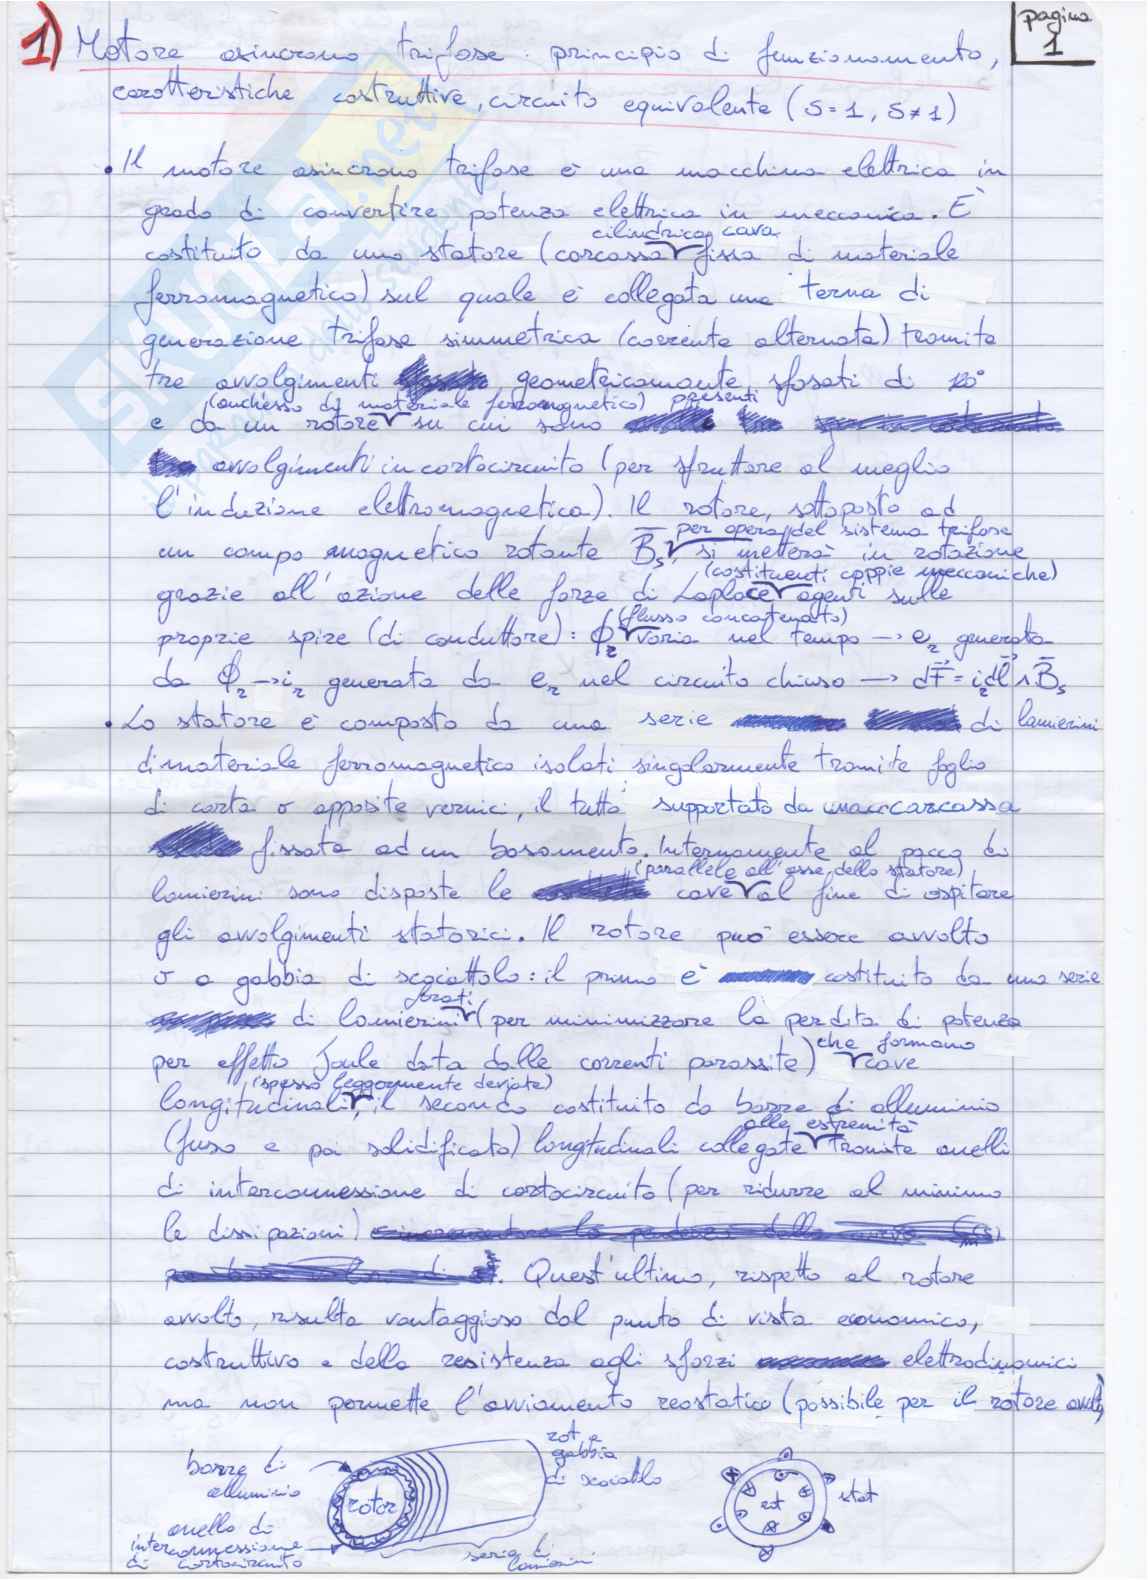 pagina
1
1) Motore asincrono trifase: principio di funzionamento,
caratteristiche costruttive, circuito equivalente (s=1, s≠1)
• Il motore asincrono trifase è una macchina elettrica in
grado di convertire potenza elettrica in meccanica. È
cilindrica cava
costituito da uno statore (carcassa fissa di materiale
ferromagnetico) sul quale è collegata una terna di
generazione trifase simmetrica (corrente alternata) tramite
tre avvolgimenti geometricamente sfasati di 120°
(anch'esso di materiale ferromagnetico) presenti
e da un rotore su cui sono
avvolgimenti in cortocircuito (per sfruttare al meglio
l'induzione elettromagnetica). Il rotore, sottoposto ad
per opera del sistema trifase
un campo magnetico rotante B̅s, si metterà in rotazione
(costituenti coppie meccaniche)
grazie all'azione delle forze di Laplace agenti sulle
(flusso concatenato)
proprie spire (di conduttore): ϕ₂ varia nel tempo → e₂ generata
da ϕ₂ → i₂ generata da e₂ nel circuito chiuso → dF̅ = i₂dl̅ ∧ B̅s
• Lo statore è composto da una serie di lamierini
di materiale ferromagnetico isolati singolarmente tramite foglio
di carta o apposite vernici, il tutto supportato da una carcassa
fissata ad un basamento. Internamente al pacco di
(parallele all'asse dello statore)
lamierini sono disposte le cave al fine di ospitare
gli avvolgimenti statorici. Il rotore può essere avvolto
o a gabbia di scoiattolo: il primo è costituito da una serie
forati
di lamierini (per minimizzare la perdita di potenza
che formano
per effetto Joule data dalle correnti parassite) cave
(spesso leggermente deviate)
longitudinali, il secondo costituito da barre di alluminio
alle estremità
(fuso e poi solidificato) longitudinali collegate tramite anelli
di interconnessione di cortocircuito (per ridurre al minimo
le dissipazioni)
. Quest'ultimo, rispetto al rotore
avvolto, risulta vantaggioso dal punto di vista economico,
costruttivo e della resistenza agli sforzi elettrodinamici
ma non permette l'avviamento reostatico (possibile per il rotore avvolto)
barre di
alluminio
rotor
rot. a
gabbia
di scoiattolo
anello di
interconnessione
di cortocircuito
serie di
lamierini
rot
stat
SKUOLA.net